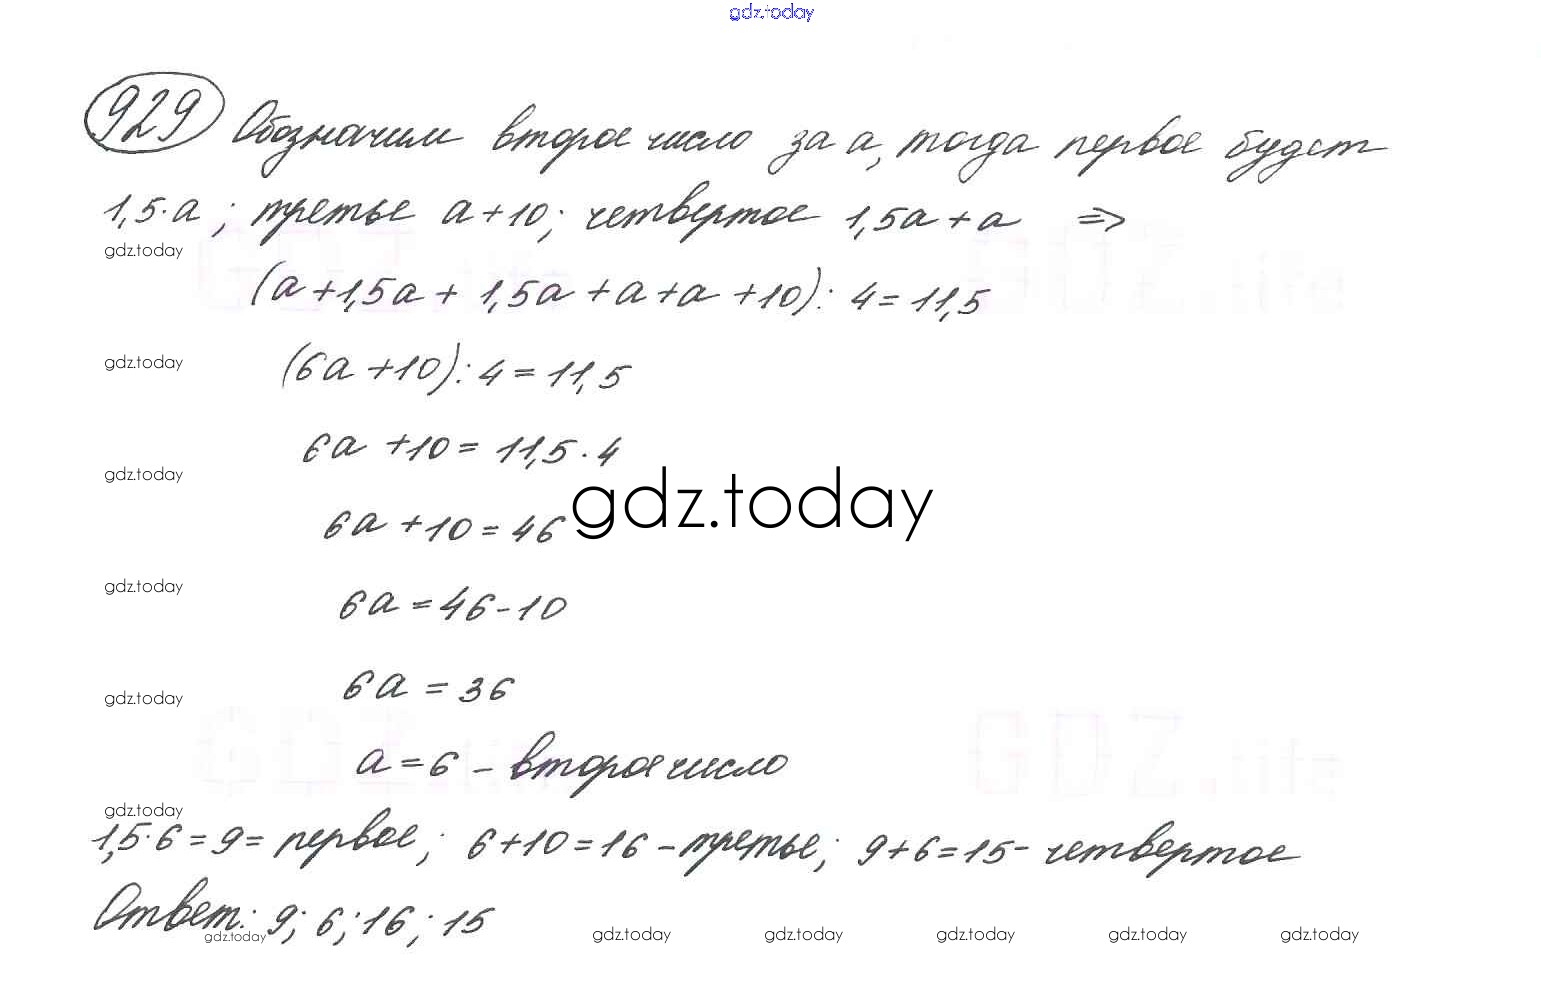 gdz.today
929 Обозначим второе число за a, тогда первое будет
1,5·a; третье a+10; четвертое 1,5a+a ⇒
gdz.today
(a+1,5a+1,5a+a+a+10):4=11,5
gdz.today
(6a+10):4=11,5
6a+10=11,5·4
gdz.today
gdz.today
6a+10=46
gdz.today
6a=46-10
6a=36
gdz.today
a=6 – второе число
gdz.today
1,5·6=9= первое; 6+10=16 – третье; 9+6=15- четвертое
Ответ: 9; 6; 16; 15
gdz.today gdz.today gdz.today gdz.today gdz.today gdz.today
GDZ.life GDZ.life
GDZ.life GDZ.life